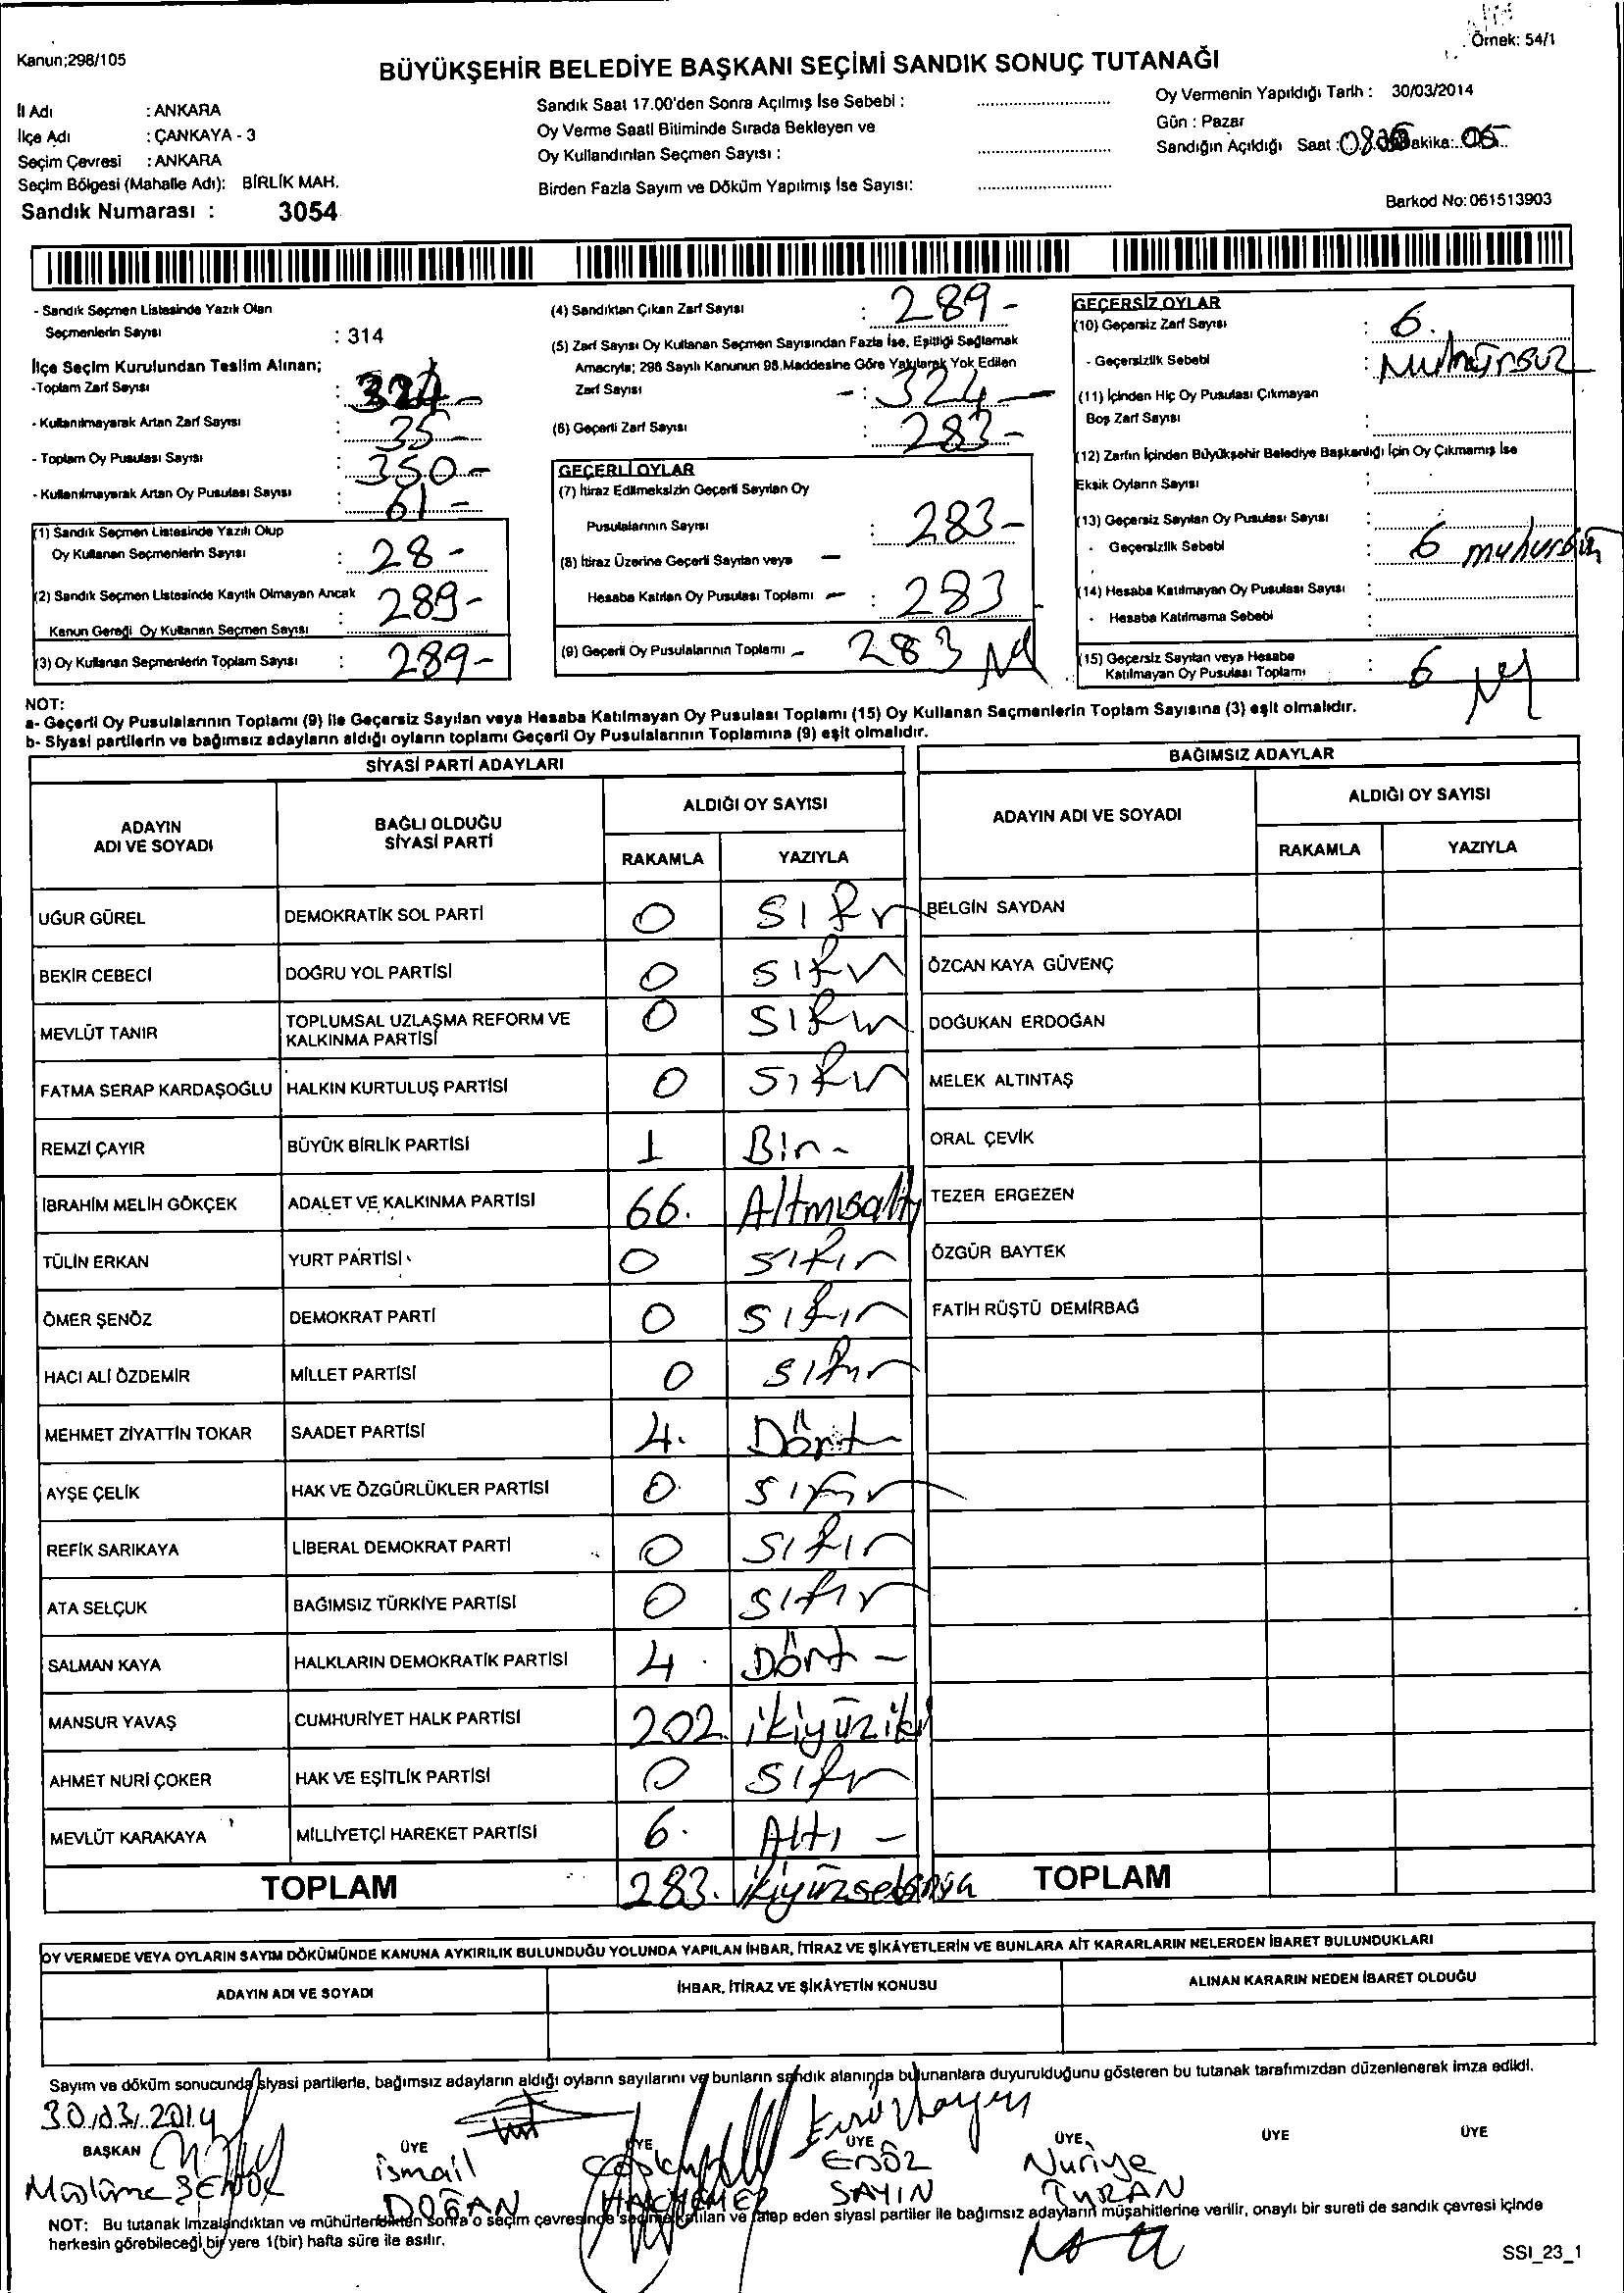 Örnek: 54/1
Kanun;298/105
BÜYÜKŞEHİR BELEDİYE BAŞKANI SEÇİMİ SANDIK SONUÇ TUTANAĞI
İl Adı : ANKARA
İlçe Adı : ÇANKAYA - 3
Seçim Çevresi : ANKARA
Seçim Bölgesi (Mahalle Adı): BİRLİK MAH.
Sandık Numarası : 3054
Sandık Saat 17.00'den Sonra Açılmış İse Sebebi :
Oy Verme Saati Bitiminde Sırada Bekleyen ve
Oy Kullandırılan Seçmen Sayısı :
Birden Fazla Sayım ve Döküm Yapılmış İse Sayısı:
Oy Vermenin Yapıldığı Tarih : 30/03/2014
Gün : Pazar
Sandığın Açıldığı Saat : Dakika: 05
Barkod No:061513903
- Sandık Seçmen Listesinde Yazılı Olan
Seçmenlerin Sayısı : 314
İlçe Seçim Kurulundan Teslim Alınan;
-Toplam Zarf Sayısı : 324 -
- Kullanılmayarak Artan Zarf Sayısı : 35 -
- Toplam Oy Pusulası Sayısı : 350 -
- Kullanılmayarak Artan Oy Pusulası Sayısı : 61 -
(1) Sandık Seçmen Listesinde Yazılı Olup
Oy Kullanan Seçmenlerin Sayısı : 28 -
(2) Sandık Seçmen Listesinde Kayıtlı Olmayan Ancak
Kanun Gereği Oy Kullanan Seçmen Sayısı : 289 -
(3) Oy Kullanan Seçmenlerin Toplam Sayısı : 289 -
(4) Sandıktan Çıkan Zarf Sayısı : 289 -
(5) Zarf Sayısı Oy Kullanan Seçmen Sayısından Fazla İse, Eşitliği Sağlamak
Amacıyla; 298 Sayılı Kanunun 98.Maddesine Göre Yakılarak Yok Edilen
Zarf Sayısı - : 324 -
(6) Geçerli Zarf Sayısı : 283 -
GEÇERLİ OYLAR
(7) İtiraz Edilmeksizin Geçerli Sayılan Oy
Pusulalarının Sayısı : 283 -
(8) İtiraz Üzerine Geçerli Sayılan veya -
Hesaba Katılan Oy Pusulası Toplamı - : 283
(9) Geçerli Oy Pusulalarının Toplamı - 283
GEÇERSİZ OYLAR
(10) Geçersiz Zarf Sayısı : 6.
- Geçersizlik Sebebi : Muhürsuz
(11) İçinden Hiç Oy Pusulası Çıkmayan
Boş Zarf Sayısı :
(12) Zarfın İçinden Büyükşehir Belediye Başkanlığı İçin Oy Çıkmamış İse
Eksik Oyların Sayısı :
(13) Geçersiz Sayılan Oy Pusulası Sayısı :
- Geçersizlik Sebebi : 6
(14) Hesaba Katılmayan Oy Pusulası Sayısı :
- Hesaba Katılmama Sebebi :
(15) Geçersiz Sayılan veya Hesaba
Katılmayan Oy Pusulası Toplamı : 6
NOT:
a- Geçerli Oy Pusulalarının Toplamı (9) ile Geçersiz Sayılan veya Hesaba Katılmayan Oy Pusulası Toplamı (15) Oy Kullanan Seçmenlerin Toplam Sayısına (3) eşit olmalıdır.
b- Siyasi partilerin ve bağımsız adayların aldığı oyların toplamı Geçerli Oy Pusulalarının Toplamına (9) eşit olmalıdır.
SİYASİ PARTİ ADAYLARI
ADAYIN ADI VE SOYADI
BAĞLI OLDUĞU SİYASİ PARTİ
ALDIĞI OY SAYISI
RAKAMLA YAZIYLA
UĞUR GÜREL DEMOKRATİK SOL PARTİ 0 Sıfır
BEKİR CEBECİ DOĞRU YOL PARTİSİ 0 Sıfır
MEVLÜT TANIR TOPLUMSAL UZLAŞMA REFORM VE KALKINMA PARTİSİ 0 Sıfır
FATMA SERAP KARDAŞOĞLU HALKIN KURTULUŞ PARTİSİ 0 Sıfır
REMZİ ÇAYIR BÜYÜK BİRLİK PARTİSİ 1 Bir -
İBRAHİM MELİH GÖKÇEK ADALET VE KALKINMA PARTİSİ 66. Altmışaltı
TÜLİN ERKAN YURT PARTİSİ 0 Sıfır
ÖMER ŞENÖZ DEMOKRAT PARTİ 0 Sıfır
HACI ALİ ÖZDEMİR MİLLET PARTİSİ 0 Sıfır
MEHMET ZİYATTİN TOKAR SAADET PARTİSİ 4. Dört -
AYŞE ÇELİK HAK VE ÖZGÜRLÜKLER PARTİSİ 0 Sıfır
REFİK SARIKAYA LİBERAL DEMOKRAT PARTİ 0 Sıfır
ATA SELÇUK BAĞIMSIZ TÜRKİYE PARTİSİ 0 Sıfır
SALMAN KAYA HALKLARIN DEMOKRATİK PARTİSİ 4. Dört -
MANSUR YAVAŞ CUMHURİYET HALK PARTİSİ 202. ikiyüziki
AHMET NURİ ÇOKER HAK VE EŞİTLİK PARTİSİ 0 Sıfır
MEVLÜT KARAKAYA MİLLİYETÇİ HAREKET PARTİSİ 6. Altı -
TOPLAM 283.
BAĞIMSIZ ADAYLAR
ADAYIN ADI VE SOYADI
ALDIĞI OY SAYISI
RAKAMLA YAZIYLA
BELGİN SAYDAN
ÖZCAN KAYA GÜVENÇ
DOĞUKAN ERDOĞAN
MELEK ALTINTAŞ
ORAL ÇEVİK
TEZER ERGEZEN
ÖZGÜR BAYTEK
FATİH RÜŞTÜ DEMİRBAĞ
TOPLAM
OY VERMEDE VEYA OYLARIN SAYIM DÖKÜMÜNDE KANUNA AYKIRILIK BULUNDUĞU YOLUNDA YAPILAN İHBAR, İTİRAZ VE ŞİKÂYETLERİN VE BUNLARA AİT KARARLARIN NELERDEN İBARET BULUNDUKLARI
ADAYIN ADI VE SOYADI
İHBAR, İTİRAZ VE ŞİKÂYETİN KONUSU
ALINAN KARARIN NEDEN İBARET OLDUĞU
Sayım ve döküm sonucunda siyasi partilerle, bağımsız adayların aldığı oyların sayılarını ve bunların sandık alanında bulunanlara duyurulduğunu gösteren bu tutanak tarafımızdan düzenlenerek imza edildi.
30/03/2014
BAŞKAN ÜYE ÜYE ÜYE ÜYE ÜYE ÜYE
İsmail DOĞAN
ERSÖZ SAYIN
Nuriye TURAN
NOT: Bu tutanak imzalandıktan ve mühürlendikten sonra o seçim çevresinde seçime katılan ve talep eden siyasi partiler ile bağımsız adayların müşahitlerine verilir, onaylı bir sureti de sandık çevresi içinde
herkesin görebileceği bir yere 1(bir) hafta süre ile asılır.
SSI_23_1